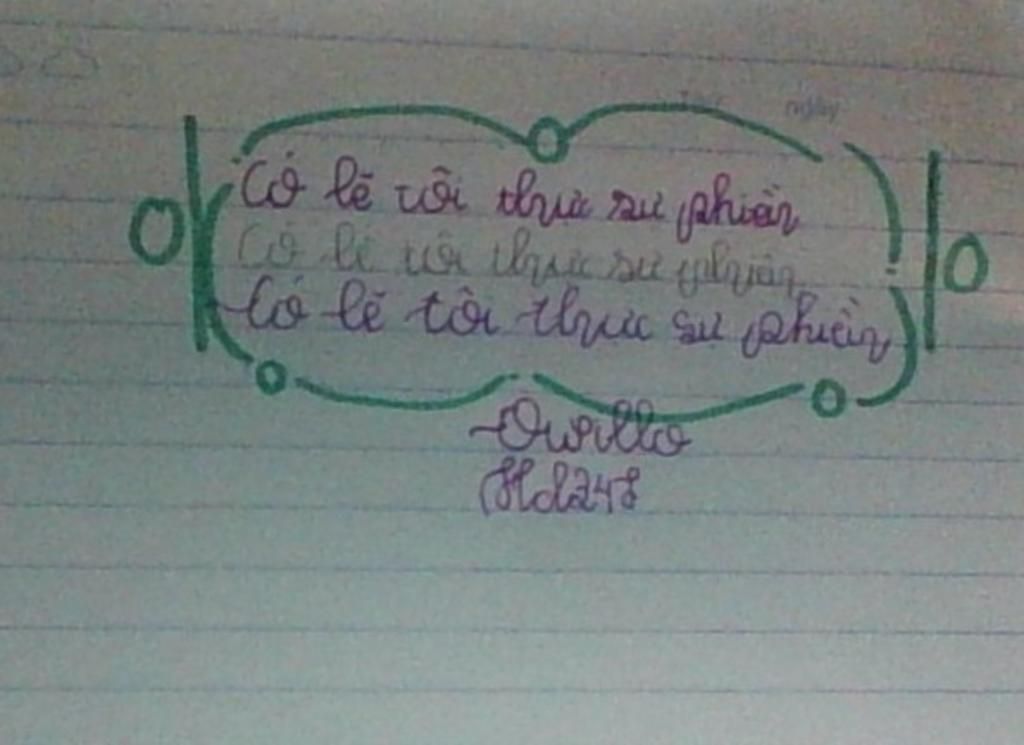 ngày
Có lẽ tôi thực sự phiền
Có lẽ tôi thực sự phiền
Có lẽ tôi thực sự phiền
-Owilla